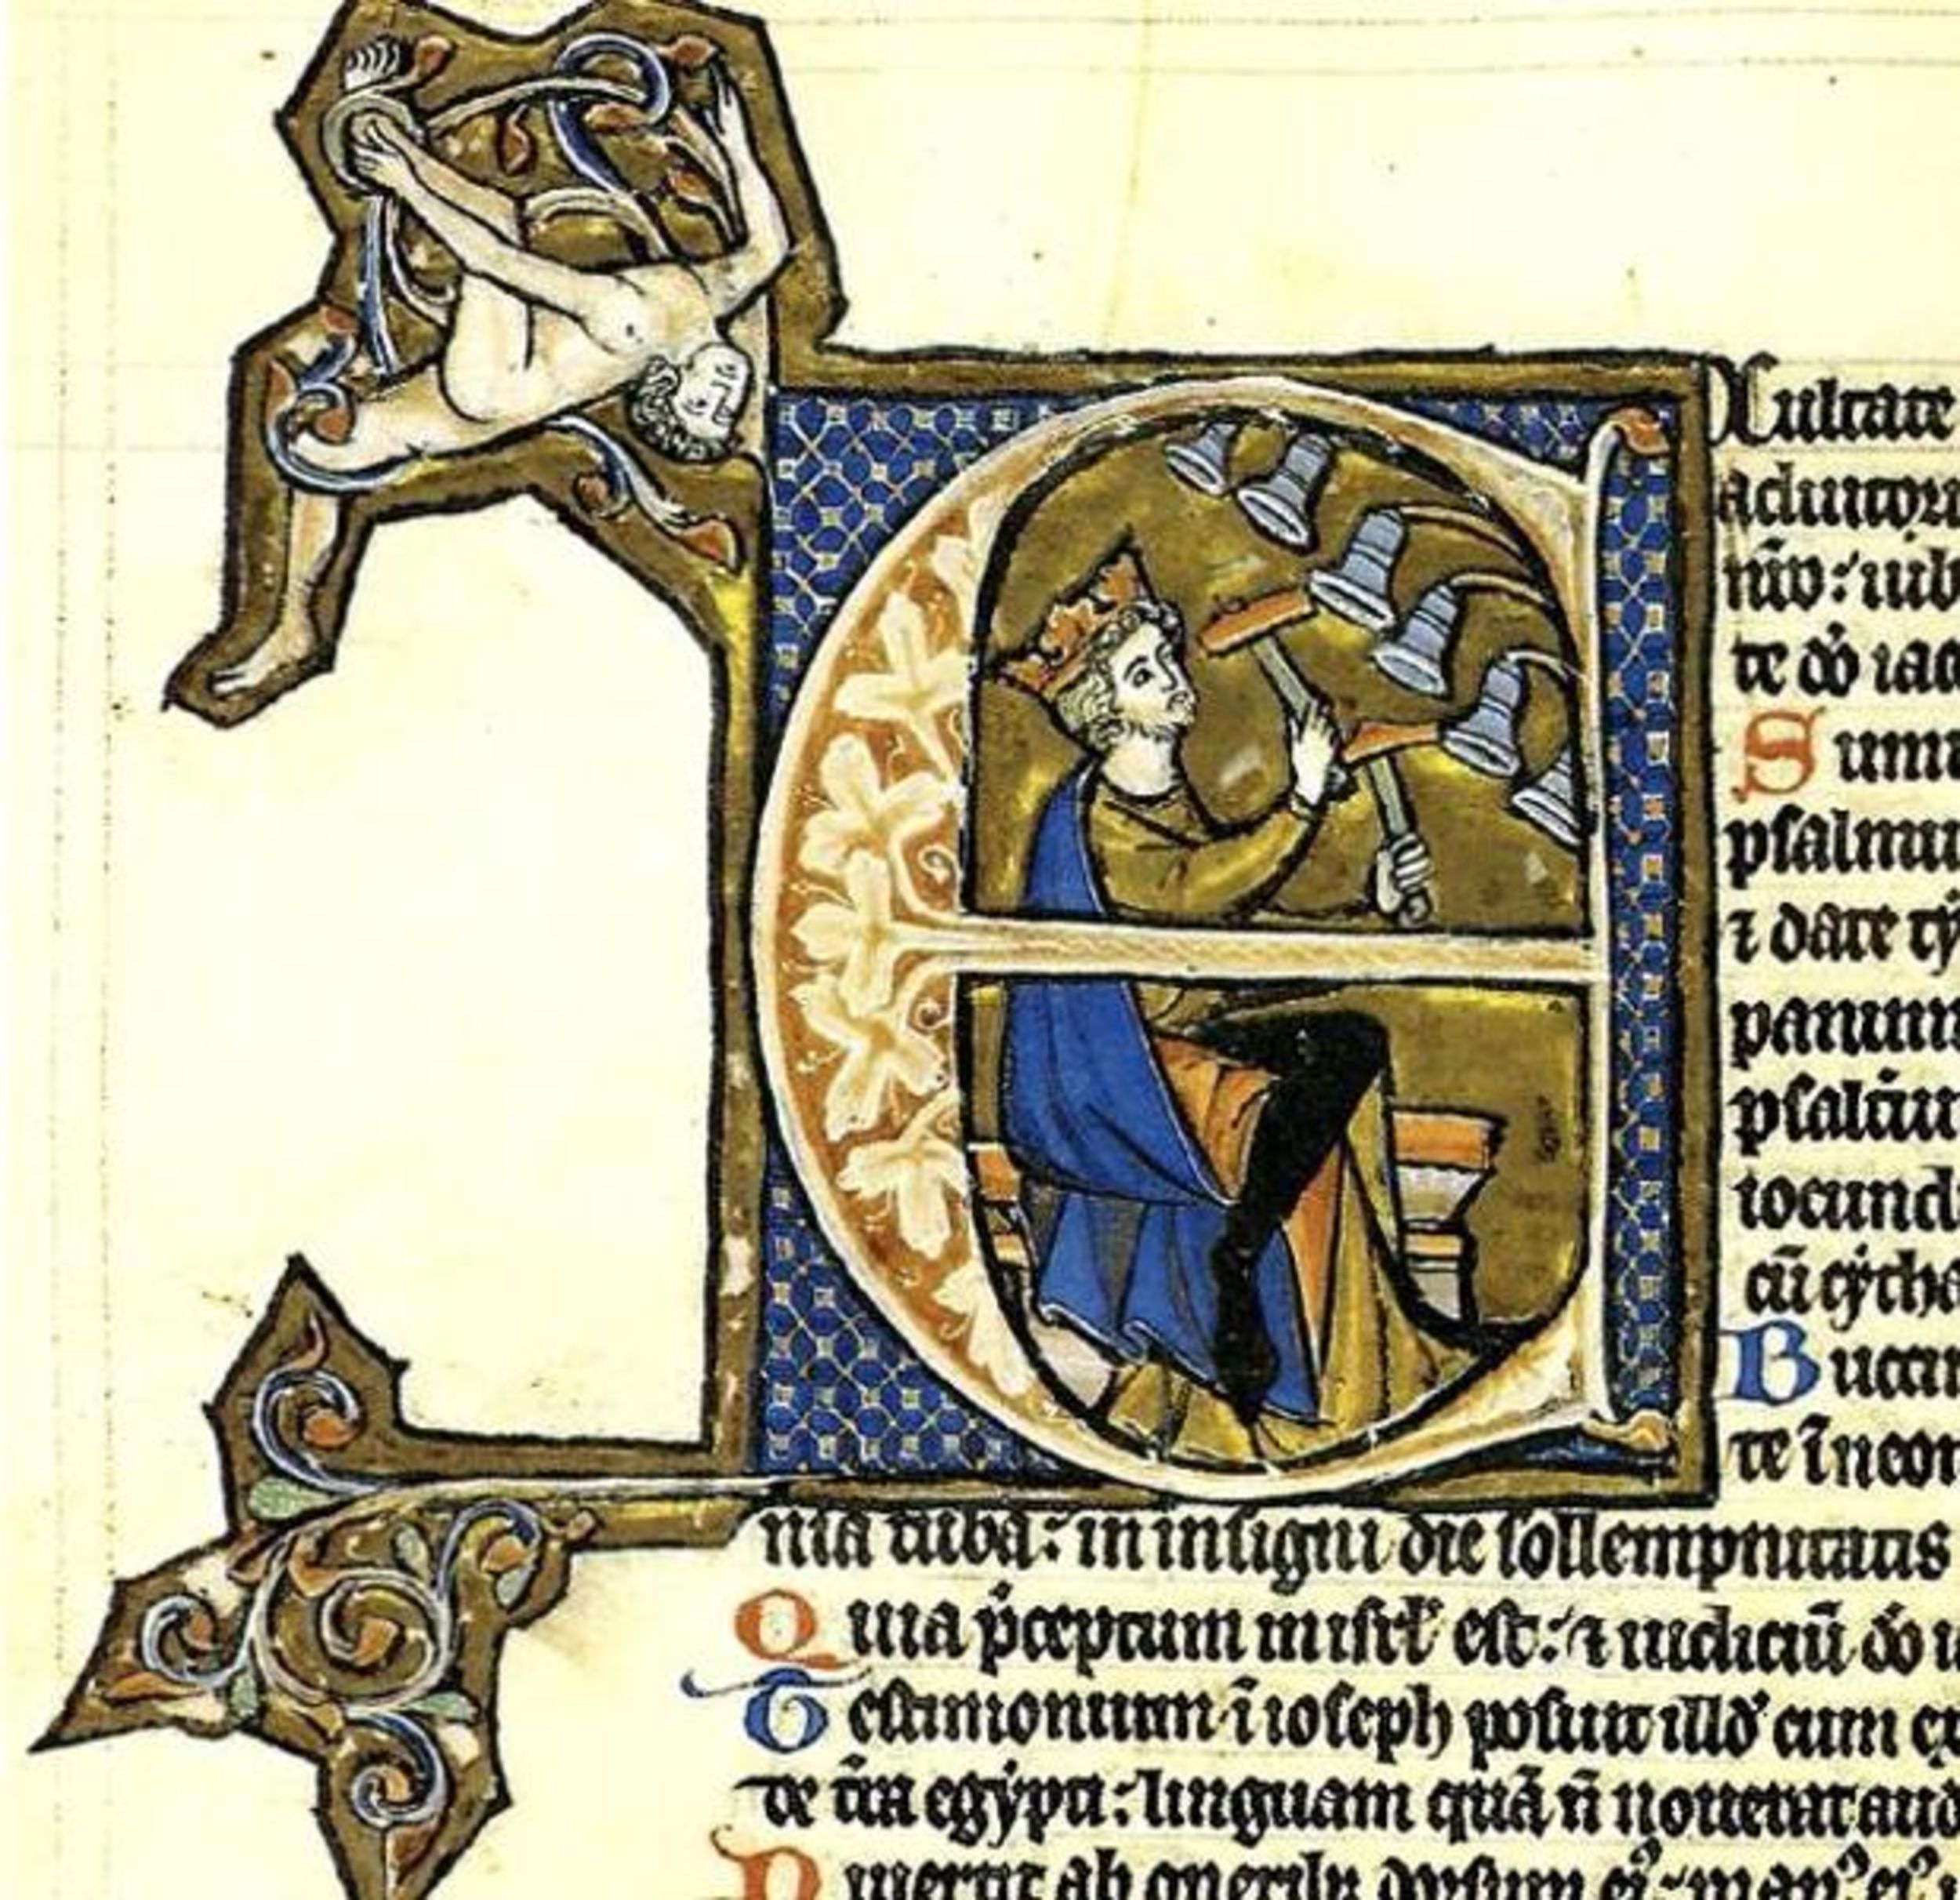 Exultate
adiutori
nr̄o: iub
te dō iac
Sumi
psalmu
⁊ date tẏ
panum
psaltiu
iocund
cū cẏtha
Buccin
te ī neom
nia tuba: in insigni die sollempnitatis
Quia p̄ceptum in isrl̄ est: ⁊ iudiciū dō i
Testimonium ī ioseph posuit illd̄ cum ex
de t̄ra egẏpti: linguam quā n̄ nouerat aud